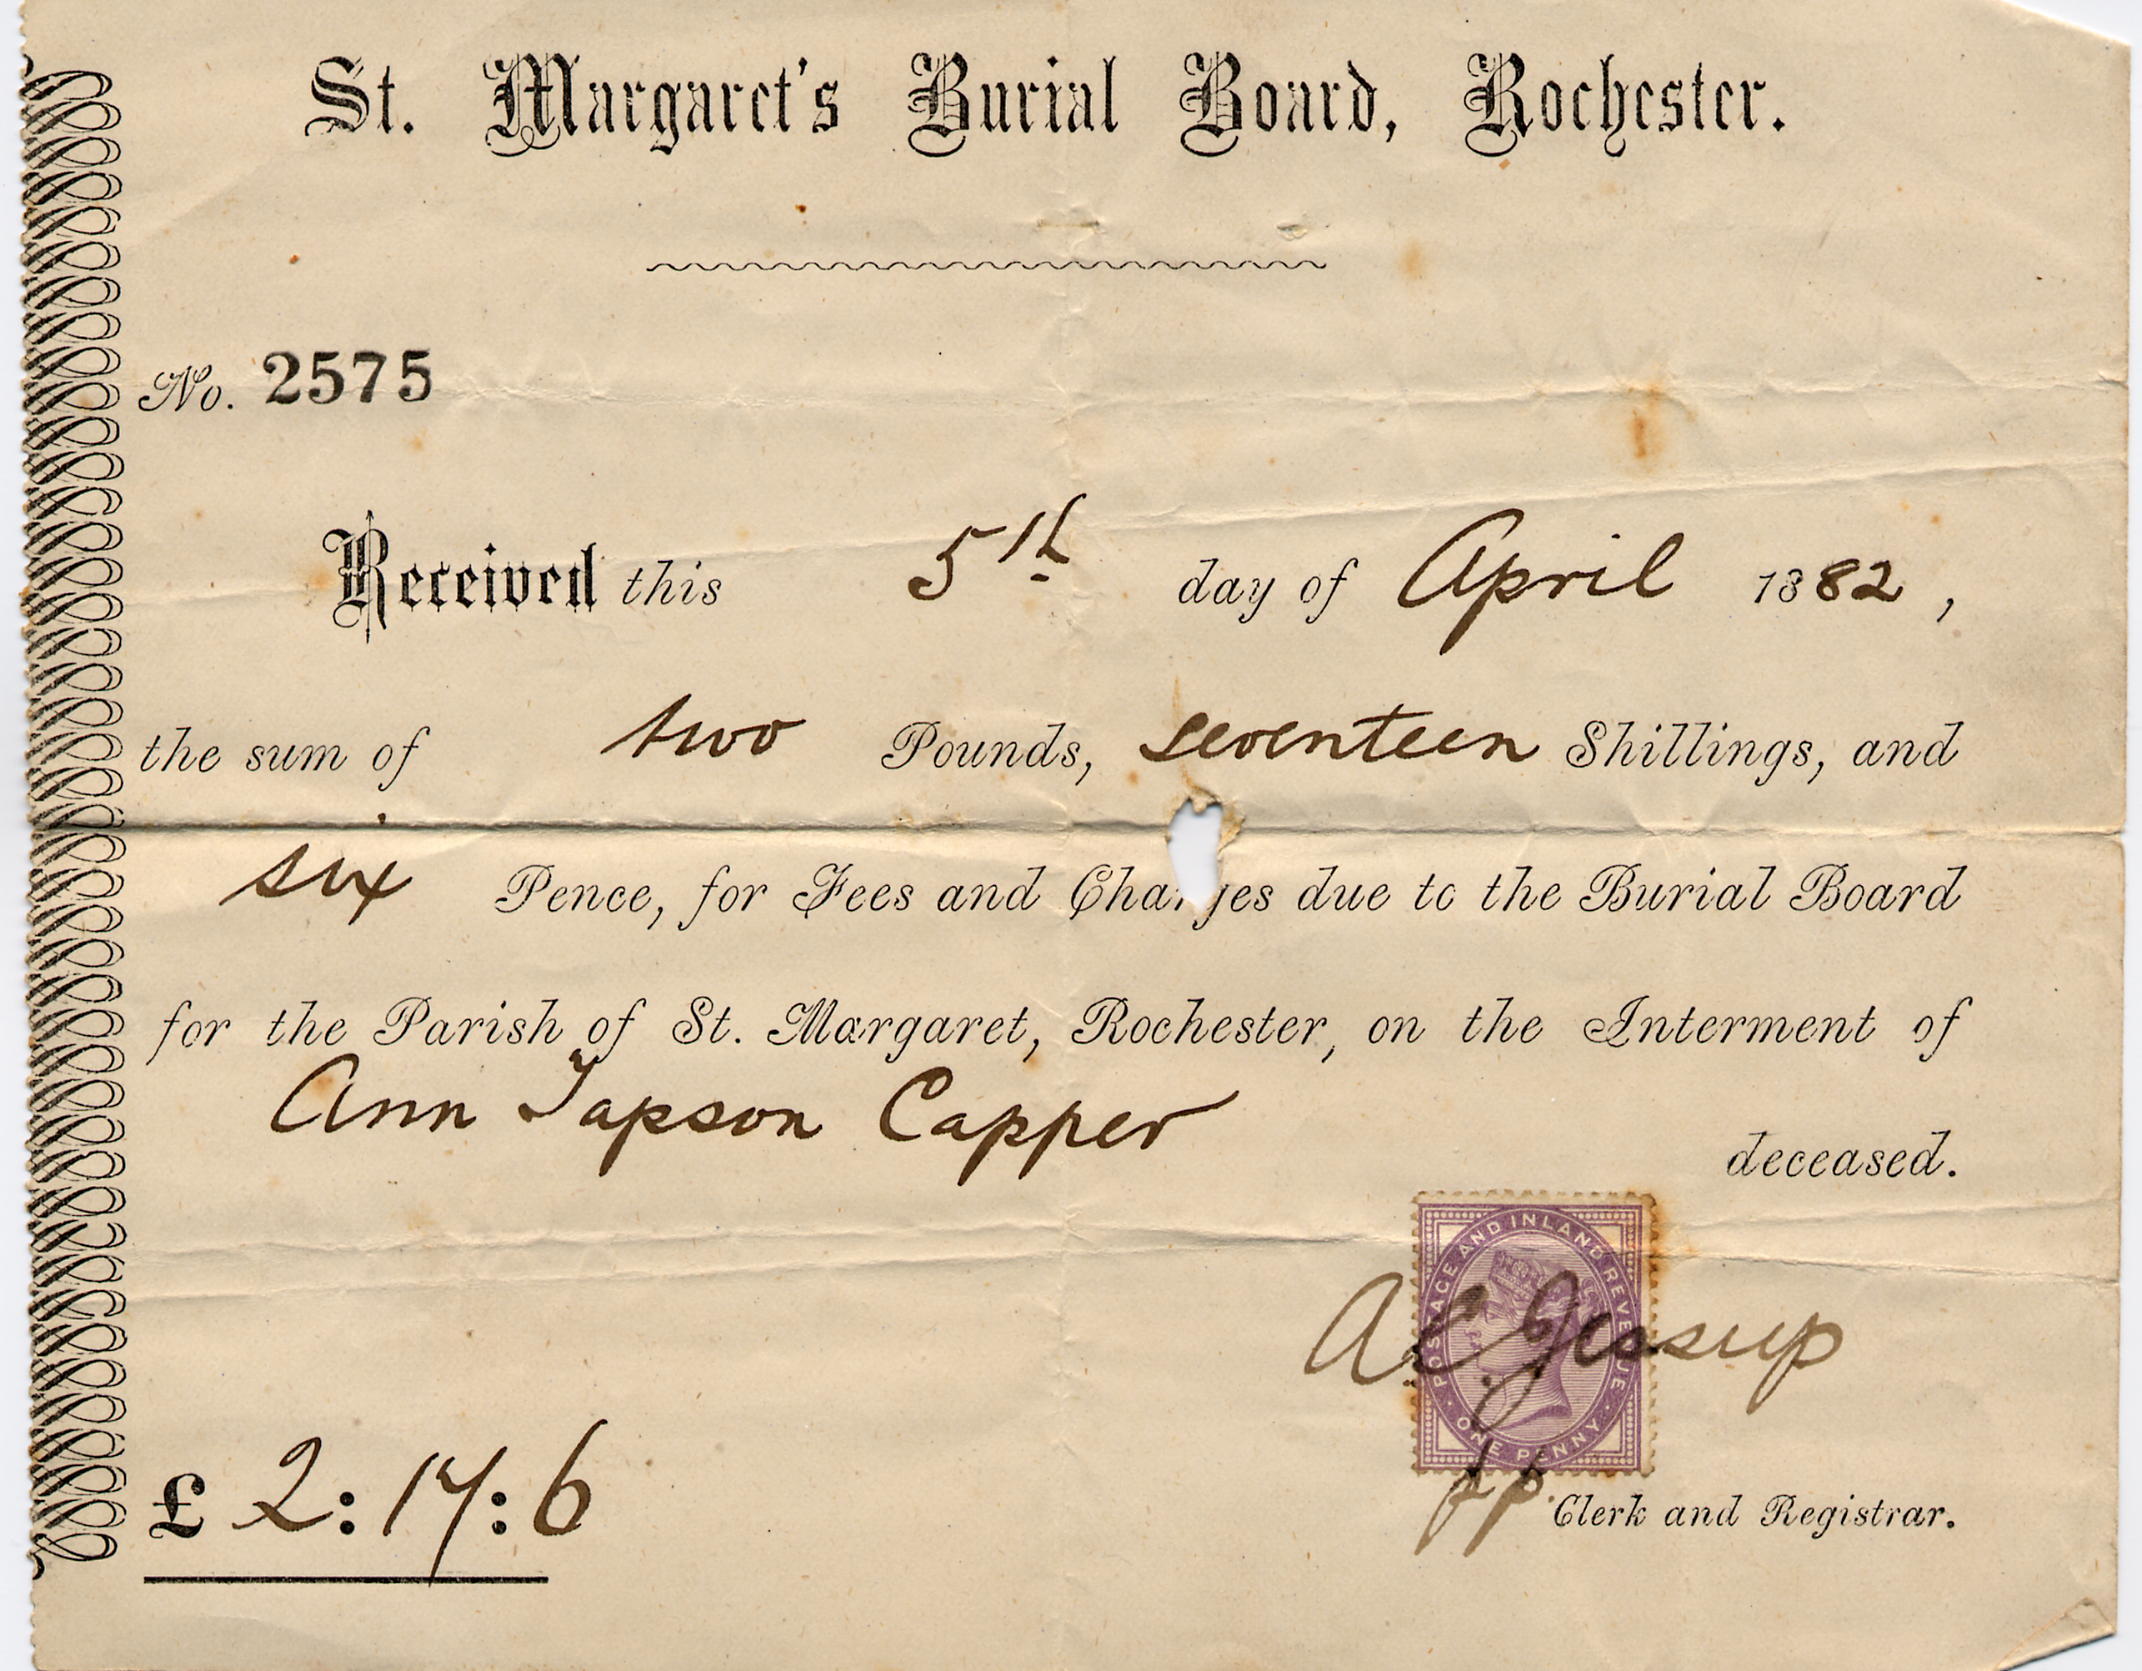 St. Margaret's Burial Board, Rochester.
No. 2575
Received this 5th day of April 1882,
the sum of two Pounds, seventeen Shillings, and
six Pence, for Fees and Charges due to the Burial Board
for the Parish of St. Margaret, Rochester, on the Interment of
Ann Tapson Capper
deceased.
POSTAGE AND INLAND REVENUE
ONE PENNY
A C Jessup
£ 2:17:6
Clerk and Registrar.